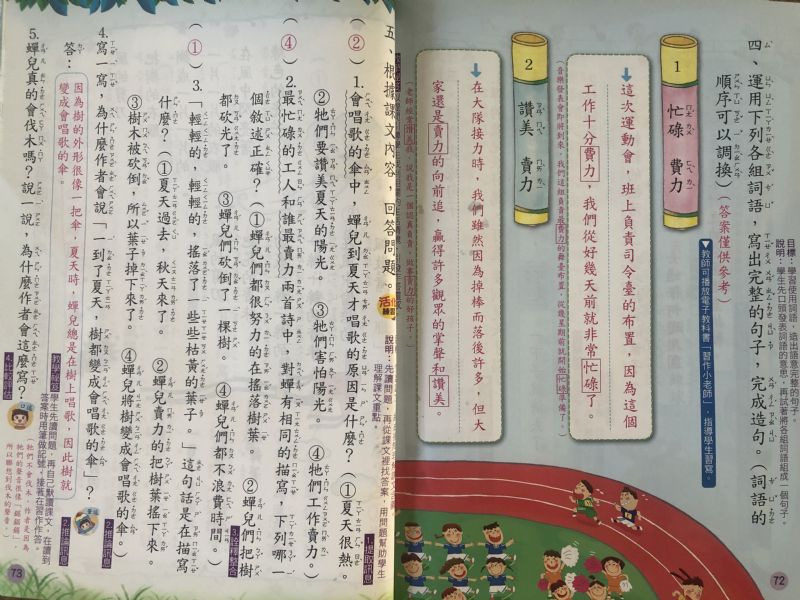 四、運用下列各組詞語，寫出完整的句子，完成造句。（詞語的
順序可以調換）（答案僅供參考）
目標：學習使用詞語，造出語意完整的句子。
說明：學生先口頭發表詞語的意思，再試著將各組詞語組成一個句子。
▼教師可播放電子教科書「習作小老師」，指導學生習寫。
1
忙碌 費力
這次運動會，班上負責司令臺的布置，因為這個
工作十分費力，我們從好幾天前就非常忙碌了。
2
讚美 賣力
在大隊接力時，我們雖然因為掉棒而落後許多，但大
家還是賣力的向前追，贏得許多觀眾的掌聲和讚美。
72
五、根據課文內容，回答問題。
說明：先讀問題，再從課文裡找答案，用問題幫助學生
理解課文重點。
（②）1.會唱歌的傘中，蟬兒到夏天才唱歌的原因是什麼？（①夏天很熱。
②牠們要讚美夏天的陽光。 ③牠們害怕陽光。 ④牠們工作賣力。）
1.提取訊息
（④）2.最忙碌的工人和誰最賣力兩首詩中，對蟬有相同的描寫，下列哪一
個敘述正確？（①蟬兒們都很努力的在搖落樹葉。 ②蟬兒們把樹
都砍光了。 ③蟬兒們砍倒了一棵樹。 ④蟬兒們都不浪費時間。）
3.詮釋整合
（①）3.「輕輕的，輕輕的，搖落了一些些枯黃的葉子。」這句話是在描寫
什麼？（①夏天過去，秋天來了。 ②蟬兒賣力的把樹葉搖下來。
③樹木被砍倒，所以葉子掉下來了。 ④蟬將樹變成會唱歌的傘。）
2.推論訊息
4.寫一寫，為什麼作者會說「一到了夏天，樹都變成會唱歌的傘」？
2.推論訊息
答：因為樹的外形很像一把傘，夏天時，蟬兒總是在樹上唱歌，因此樹就
變成會唱歌的傘。
學生先讀問題，再自己默讀課文，在讀到
答案時用筆做記號，接著在習作作答。
5.蟬兒真的會伐木嗎？說一說，為什麼作者會這麼寫？
4.比較評估
73